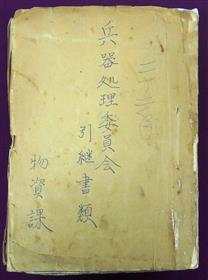 兵器処理委員会
引継書類
物資課